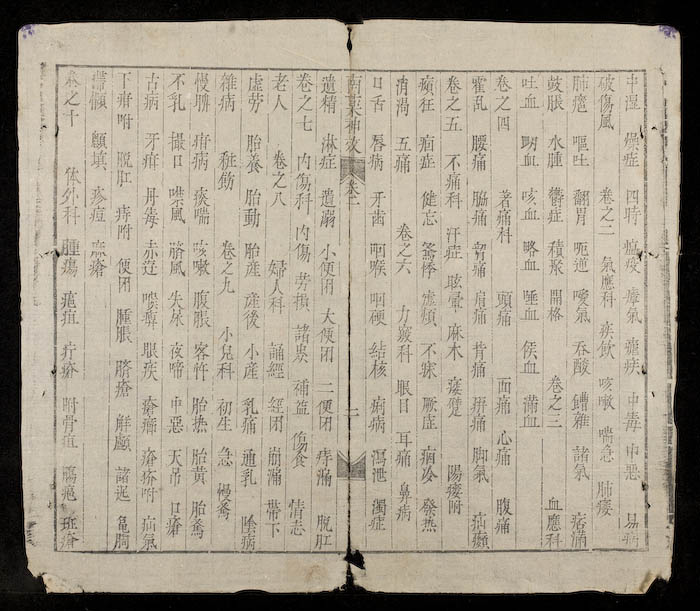 中湿 燥症 四時 瘟疫 瘴氣 瘧疾 中毒 中惡 易病
破傷風 卷之二 氣應科 痰飲 咳嗽 喘急 肺痿
肺癰 嘔吐 翻胃 呃逆 噯氣 吞酸 嘈雜 諸氣 痞滿
鼓脹 水腫 欝症 積聚 開格 卷之三 血應科
吐血 衂血 咳血 咯血 唾血 便血 滿血
卷之四 著痛科 頭痛 面痛 心痛 腹痛
霍乱 腰痛 脇痛 脅痛 肩痛 背痛 脚氣 疝癩
卷之五 不痛科 汗症 眩暈 麻木 痿躄 陽痿附
癲狂 癇症 健忘 驚悸 虛煩 不寐 厥症 痼冷 發熱
消渴 五痛 卷之六 九竅科 眼目 耳痛 鼻病
口舌 唇病 牙齒 咽喉 咽硬 結核 痢病 瀉泄 濁症
南藥神效 卷二 二
遺精 淋症 遺溺 小便閉 大便閉 二便閉 痔漏 脫肛
卷之七 內傷科 內傷 勞損 諸蟲 補益 傷食 情志
老人 卷之八 婦人科 調經 經閉 崩漏 帶下
虛劳 胎養 胎動 胎產 產後 小產 乳痛 通乳 陰病
雜病 粧飾 卷之九 小兒科 初生 急 慢驚
慢脾 疳病 痰喘 咳嗽 腹脹 客忤 胎热 胎黃 胎驚
不乳 撮口 噤風 臍風 失尿 夜啼 中惡 天吊 口瘡
古病 牙疳 丹毒 赤遊 喉痺 眼疾 瘡癤 瘡疥附 疝氣
下疳附 脫肛 痔附 便閉 腫脹 臍瘡 解顱 諸遲 龜胸
滯頤 顱填 疹痘 麻瘡
卷之十 体外科 腫瘍 癰疽 疔瘡 附骨疽 腸癰 斑瘡